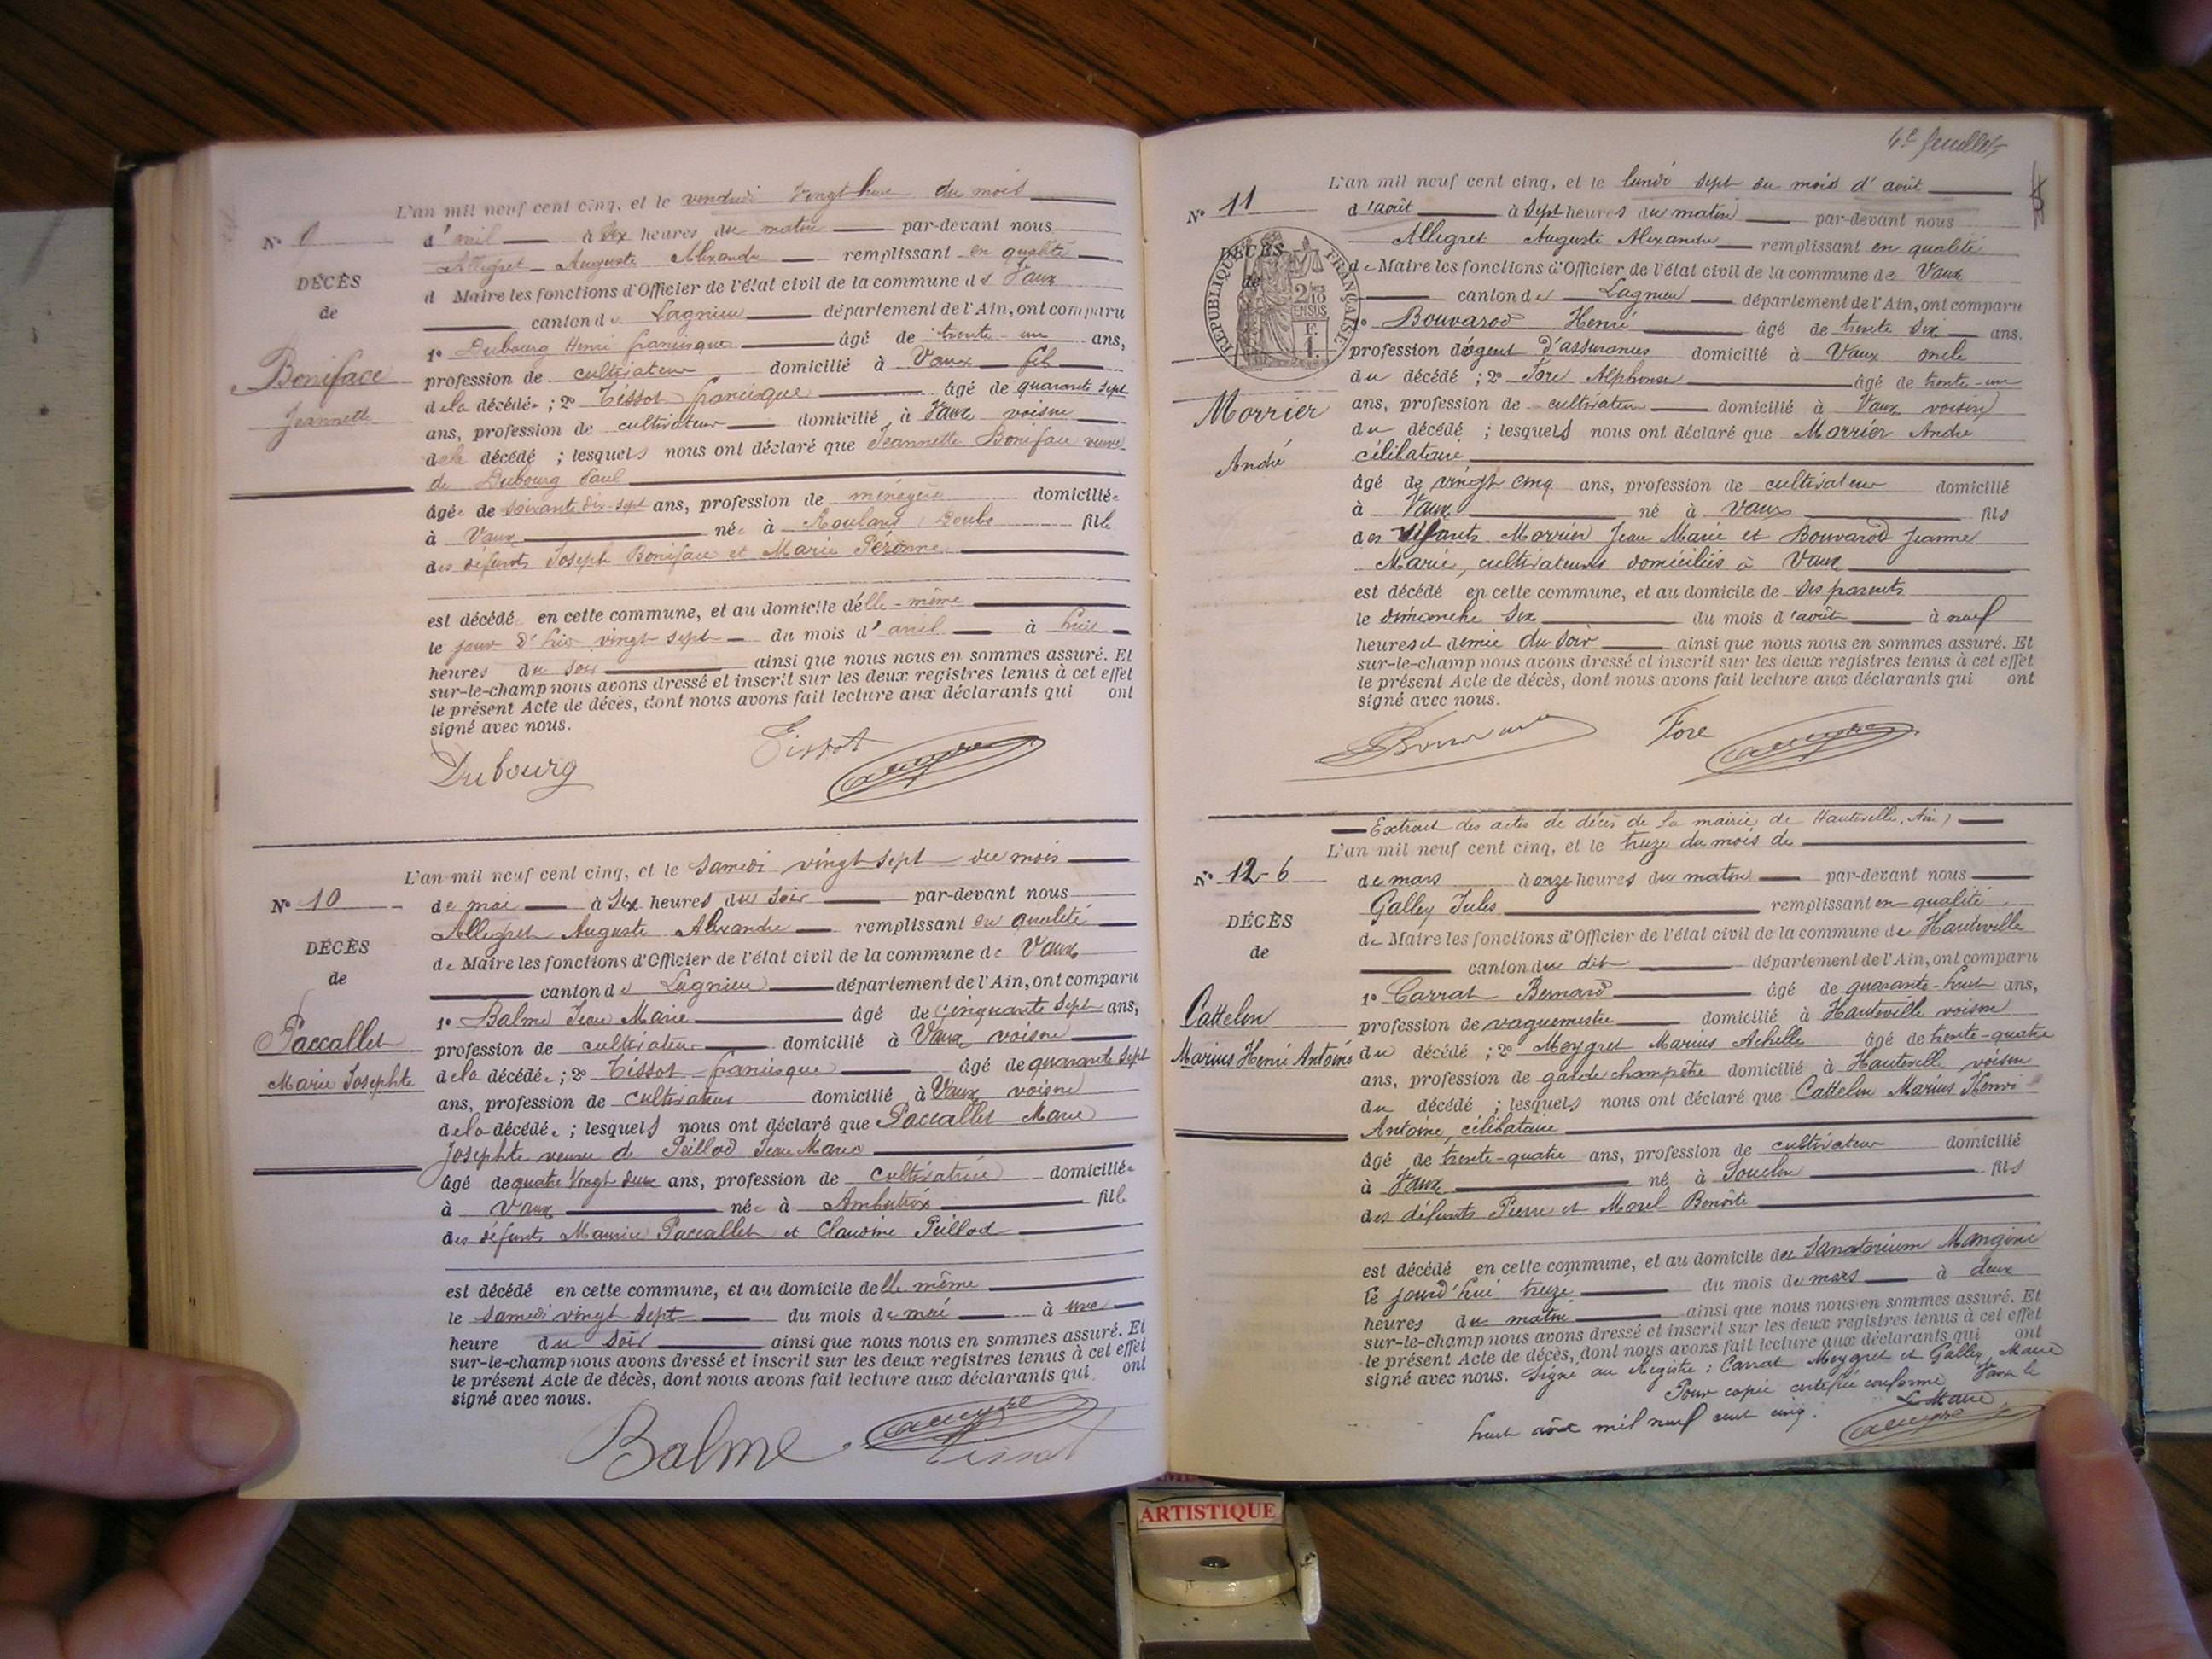 L'an mil neuf cent cinq, et le vendredi vingt huit du mois
N° 9
d'avril à six heures du matin par-devant nous
Allegret Auguste Alexandre remplissant en qualité
DÉCÈS
d Maire les fonctions d'Officier de l'état civil de la commune de Vaux
de
canton de Lagnieu département de l'Ain, ont comparu
1° Dubourg Henri francisque âgé de trente-un ans,
Boniface
profession de cultivateur domicilié à Vaux fils
Jeannette
de la décédée ; 2° Tissot francisque âgé de quarante sept
ans, profession de cultivateur domicilié à Vaux voisin
de la décédé ; lesquels nous ont déclaré que Jeannette Boniface veuve
de Dubourg Paul
âgée de soixante dix-sept ans, profession de ménagère domiciliée
à Vaux née à Doubs fille
des défunts Joseph Boniface et Marie Péronne
est décédé en cette commune, et au domicile d'elle-même
le jour d'hier vingt sept du mois d'avril à huit
heures du soir ainsi que nous nous en sommes assuré. Et
sur-le-champ nous avons dressé et inscrit sur les deux registres tenus à cet effet
le présent Acte de décès, dont nous avons fait lecture aux déclarants qui ont
signé avec nous.
Dubourg Tissot
L'an mil neuf cent cinq, et le samedi vingt sept du mois
N° 10
de mai à six heures du soir par-devant nous
Allegret Auguste Alexandre remplissant en qualité
DÉCÈS
de Maire les fonctions d'Officier de l'état civil de la commune de Vaux
de
canton de Lagnieu département de l'Ain, ont comparu
1° Balme Jean Marie âgé de cinquante sept ans,
Paccallet
profession de cultivateur domicilié à Vaux voisin
Marie Josephte
de la décédée ; 2° Tissot francisque âgé de quarante sept
ans, profession de cultivateur domicilié à Vaux voisin
de la décédée ; lesquels nous ont déclaré que Paccallet Marie
Josephte veuve de Peillod Jean Marie
âgé de quatre vingt deux ans, profession de cultivatrice domiciliée
à Vaux née à Ambutrix fille
des défunts Maurice Paccallet et Claudine Peillod
est décédé en cette commune, et au domicile d'elle même
le samedi vingt sept du mois de mai à une
heure du soir ainsi que nous nous en sommes assuré. Et
sur-le-champ nous avons dressé et inscrit sur les deux registres tenus à cet effet
le présent Acte de décès, dont nous avons fait lecture aux déclarants qui ont
signé avec nous.
Balme Tissot
4e feuillet
L'an mil neuf cent cinq, et le lundi sept du mois d'août
N° 11
d'août à sept heures du matin par-devant nous
Allegret Auguste Alexandre remplissant en qualité
DÉCÈS
de
RÉPUBLIQUE FRANÇAISE
2/10 EN SUS
de Maire les fonctions d'Officier de l'état civil de la commune de Vaux
canton de Lagnieu département de l'Ain, ont comparu
1° Bouvarod Henri âgé de trente six ans.
profession d'agent d'assurances domicilié à Vaux oncle
du décédé ; 2° Fore Alphonse âgé de trente-un
Morrier
ans, profession de cultivateur domicilié à Vaux voisin
du décédé ; lesquels nous ont déclaré que Morrier André
André
célibataire
âgé de vingt cinq ans, profession de cultivateur domicilié
à Vaux né à Vaux fils
des Morrier Jean Marie et Bouvarod Jeanne
Marie, cultivateurs domiciliés à Vaux
est décédé en cette commune, et au domicile de ses parents
le dimanche six du mois d'août à neuf
heures et demie du soir ainsi que nous nous en sommes assuré. Et
sur-le-champ nous avons dressé et inscrit sur les deux registres tenus à cet effet
le présent Acte de décès, dont nous avons fait lecture aux déclarants qui ont
signé avec nous.
Fore
Extrait des actes de décès de la mairie de Hauteville, (Ain)
L'an mil neuf cent cinq, et le treize du mois de
N° 12-6
de mars à onze heures du matin par-devant nous
Galley Jules remplissant en qualité
DÉCÈS
de Maire les fonctions d'Officier de l'état civil de la commune de Hauteville
de
canton du dit département de l'Ain, ont comparu
1° Carrat Bernard âgé de quarante-huit ans,
Cattelin
profession de vaguemestre domicilié à Hauteville voisin
Marius Henri Antoine
du décédé ; 2° Meygret Marius Achille âgé de trente-quatre
ans, profession de garde champêtre domicilié à Hauteville voisin
du décédé ; lesquels nous ont déclaré que Cattelin Marius Henri
Antoine, célibataire
âgé de trente-quatre ans, profession de cultivateur domicilié
à Vaux né à Souclin fils
des défunts Pierre et Morel Benoîte
est décédé en cette commune, et au domicile du Sanatorium Mangini
le jourd'hui treize du mois de mars à deux
heures du matin ainsi que nous nous en sommes assuré. Et
sur-le-champ nous avons dressé et inscrit sur les deux registres tenus à cet effet
le présent Acte de décès, dont nous avons fait lecture aux déclarants qui ont
signé avec nous. Signé au Registre : Carrat Meygret et Galley, Maire
Pour copie certifiée conforme Vaux le
huit août mil neuf cent cinq. Le Maire
ARTISTIQUE